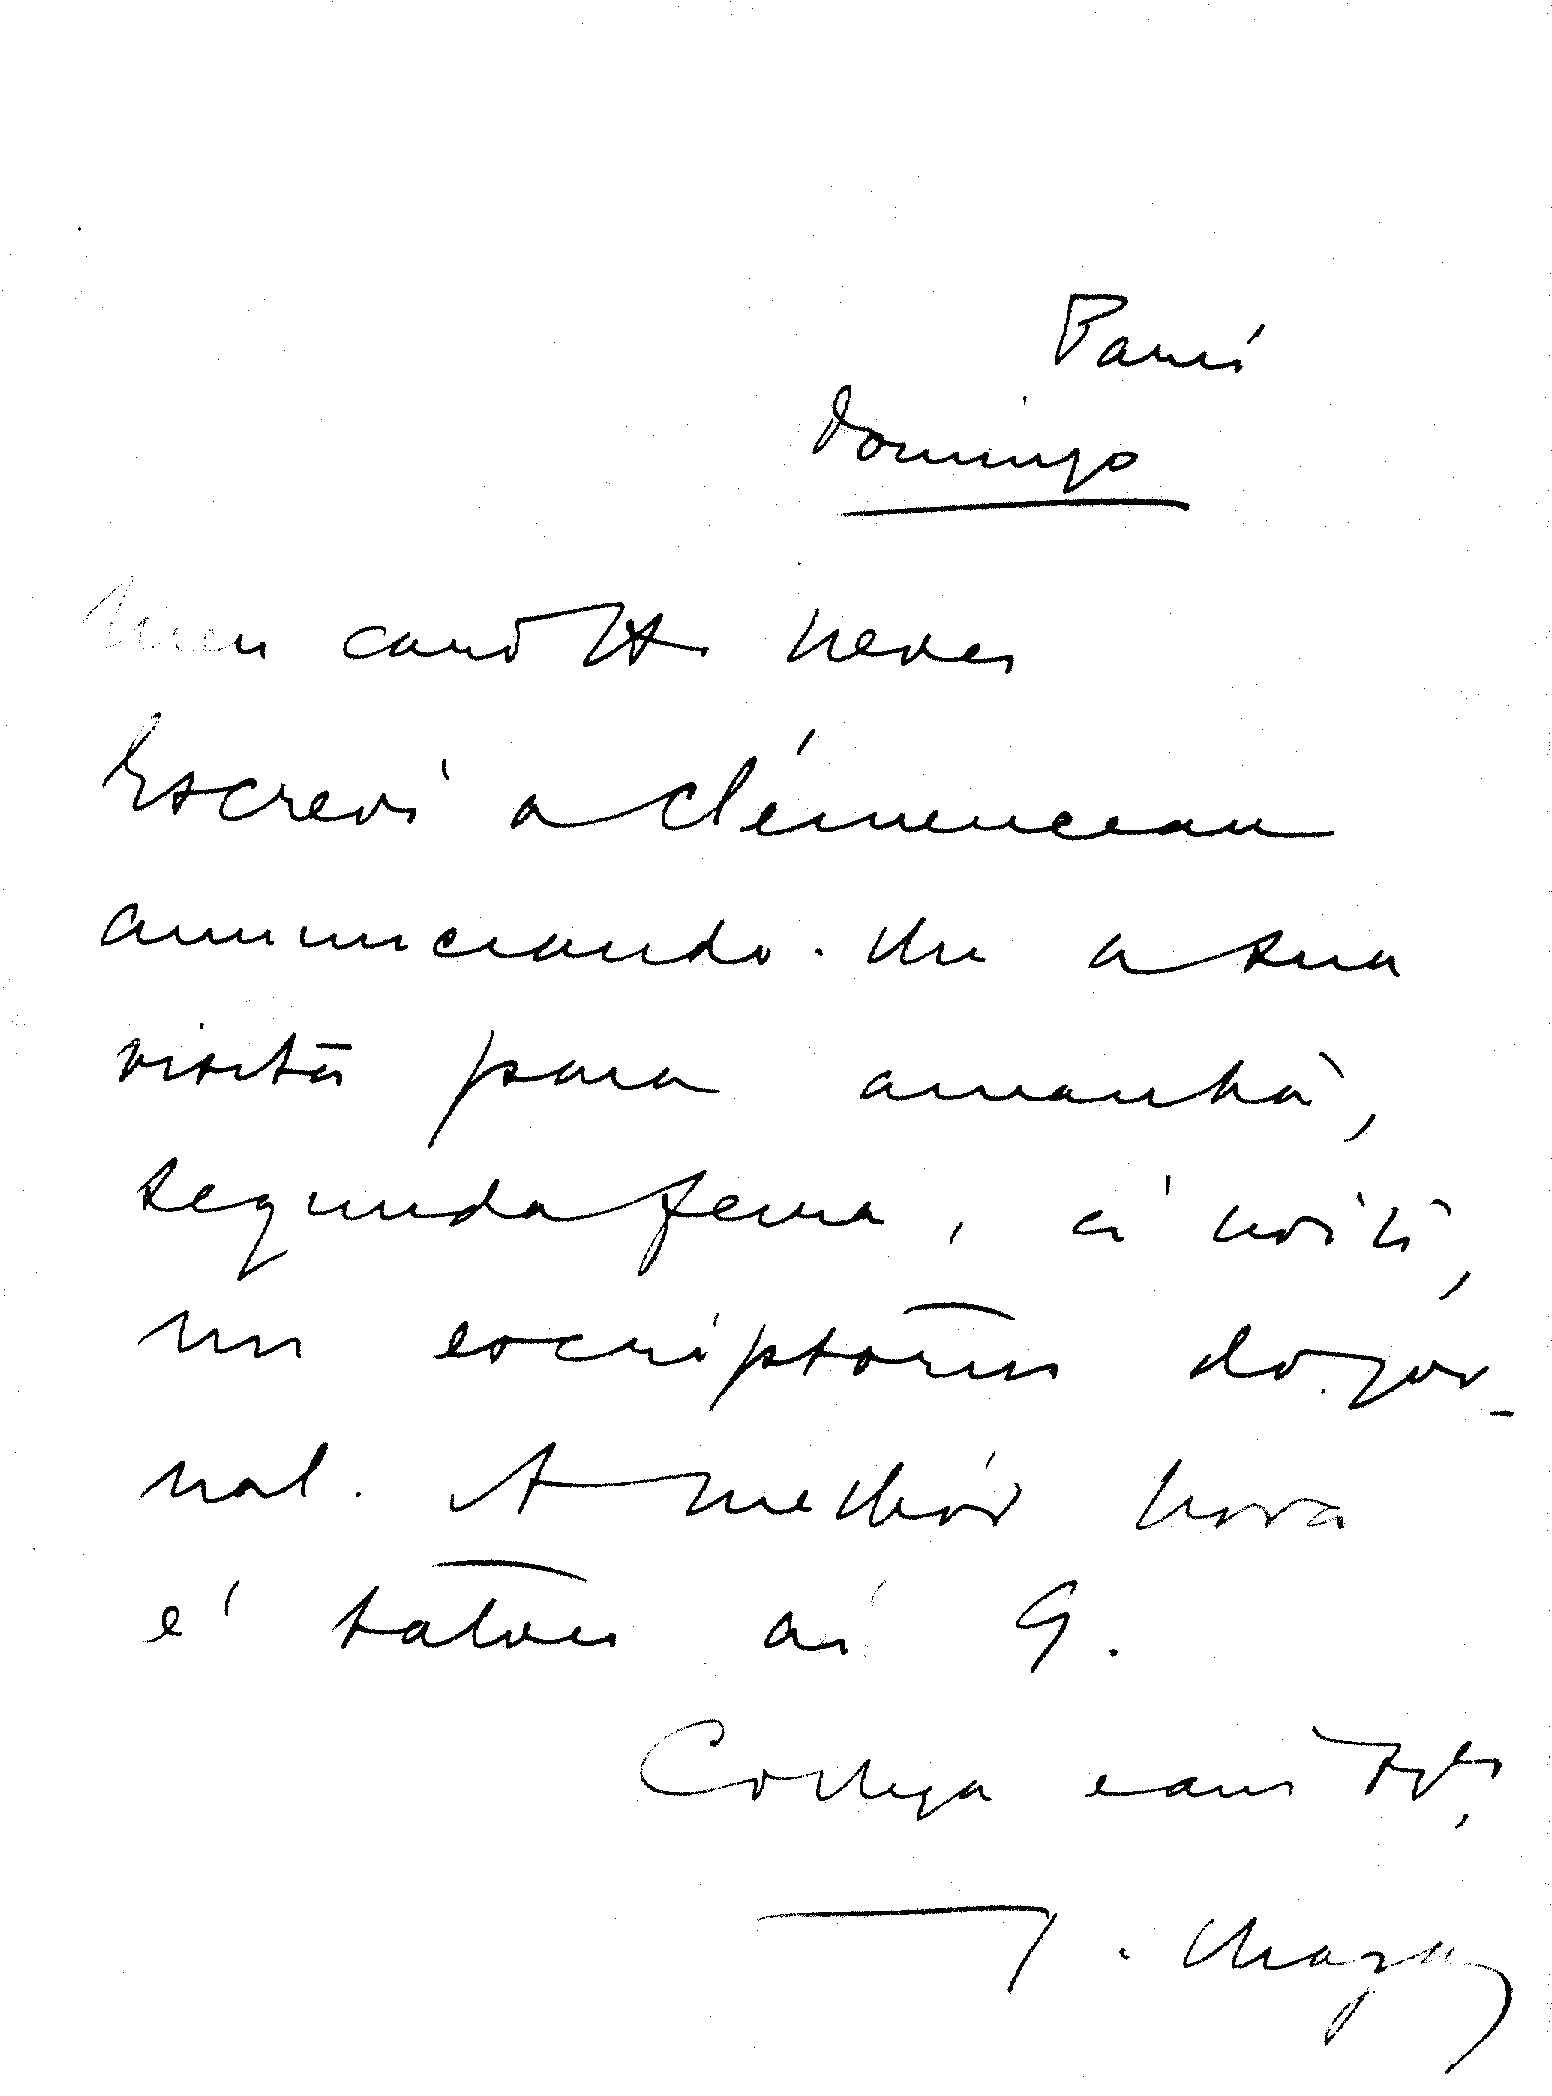 Paris
Domingo
Meu caro Neves
Escrevi a Clémenceau
annunciando-lhe a sua
visita para amanhã,
segunda feira, á noite,
nos escriptorios do jor-
nal. A melhór hora
é talves ás 9.
Collega e am.º
Magalhães